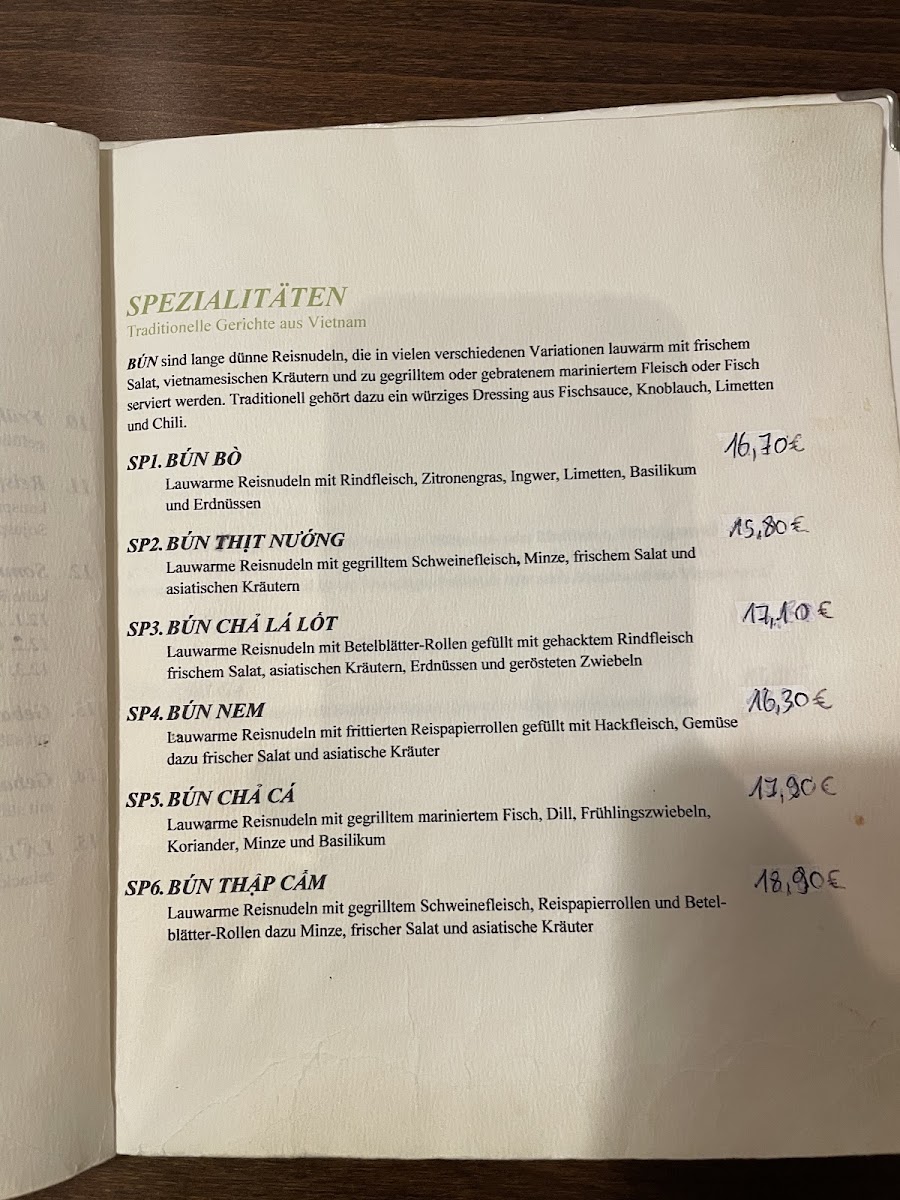 SPEZIALITÄTEN
Traditionelle Gerichte aus Vietnam
BÚN sind lange dünne Reisnudeln, die in vielen verschiedenen Variationen lauwarm mit frischem
Salat, vietnamesischen Kräutern und zu gegrilltem oder gebratenem mariniertem Fleisch oder Fisch
serviert werden. Traditionell gehört dazu ein würziges Dressing aus Fischsauce, Knoblauch, Limetten
und Chili.
SP1. BÚN BÒ 16,70€
Lauwarme Reisnudeln mit Rindfleisch, Zitronengras, Ingwer, Limetten, Basilikum
und Erdnüssen
SP2. BÚN THỊT NƯỚNG 15,80€
Lauwarme Reisnudeln mit gegrilltem Schweinefleisch, Minze, frischem Salat und
asiatischen Kräutern
SP3. BÚN CHẢ LÁ LỐT 17,10€
Lauwarme Reisnudeln mit Betelblätter-Rollen gefüllt mit gehacktem Rindfleisch
frischem Salat, asiatischen Kräutern, Erdnüssen und gerösteten Zwiebeln
SP4. BÚN NEM 16,30€
Lauwarme Reisnudeln mit frittierten Reispapierrollen gefüllt mit Hackfleisch, Gemüse
dazu frischer Salat und asiatische Kräuter
SP5. BÚN CHẢ CÁ 17,90€
Lauwarme Reisnudeln mit gegrilltem mariniertem Fisch, Dill, Frühlingszwiebeln,
Koriander, Minze und Basilikum
SP6. BÚN THẬP CẨM 18,90€
Lauwarme Reisnudeln mit gegrilltem Schweinefleisch, Reispapierrollen und Betel-
blätter-Rollen dazu Minze, frischer Salat und asiatische Kräuter